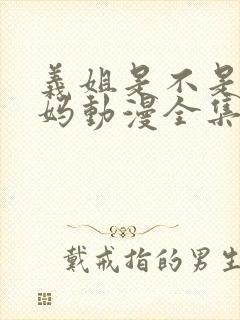 義姐是不是
妈動漫全集
戴戒指的男生